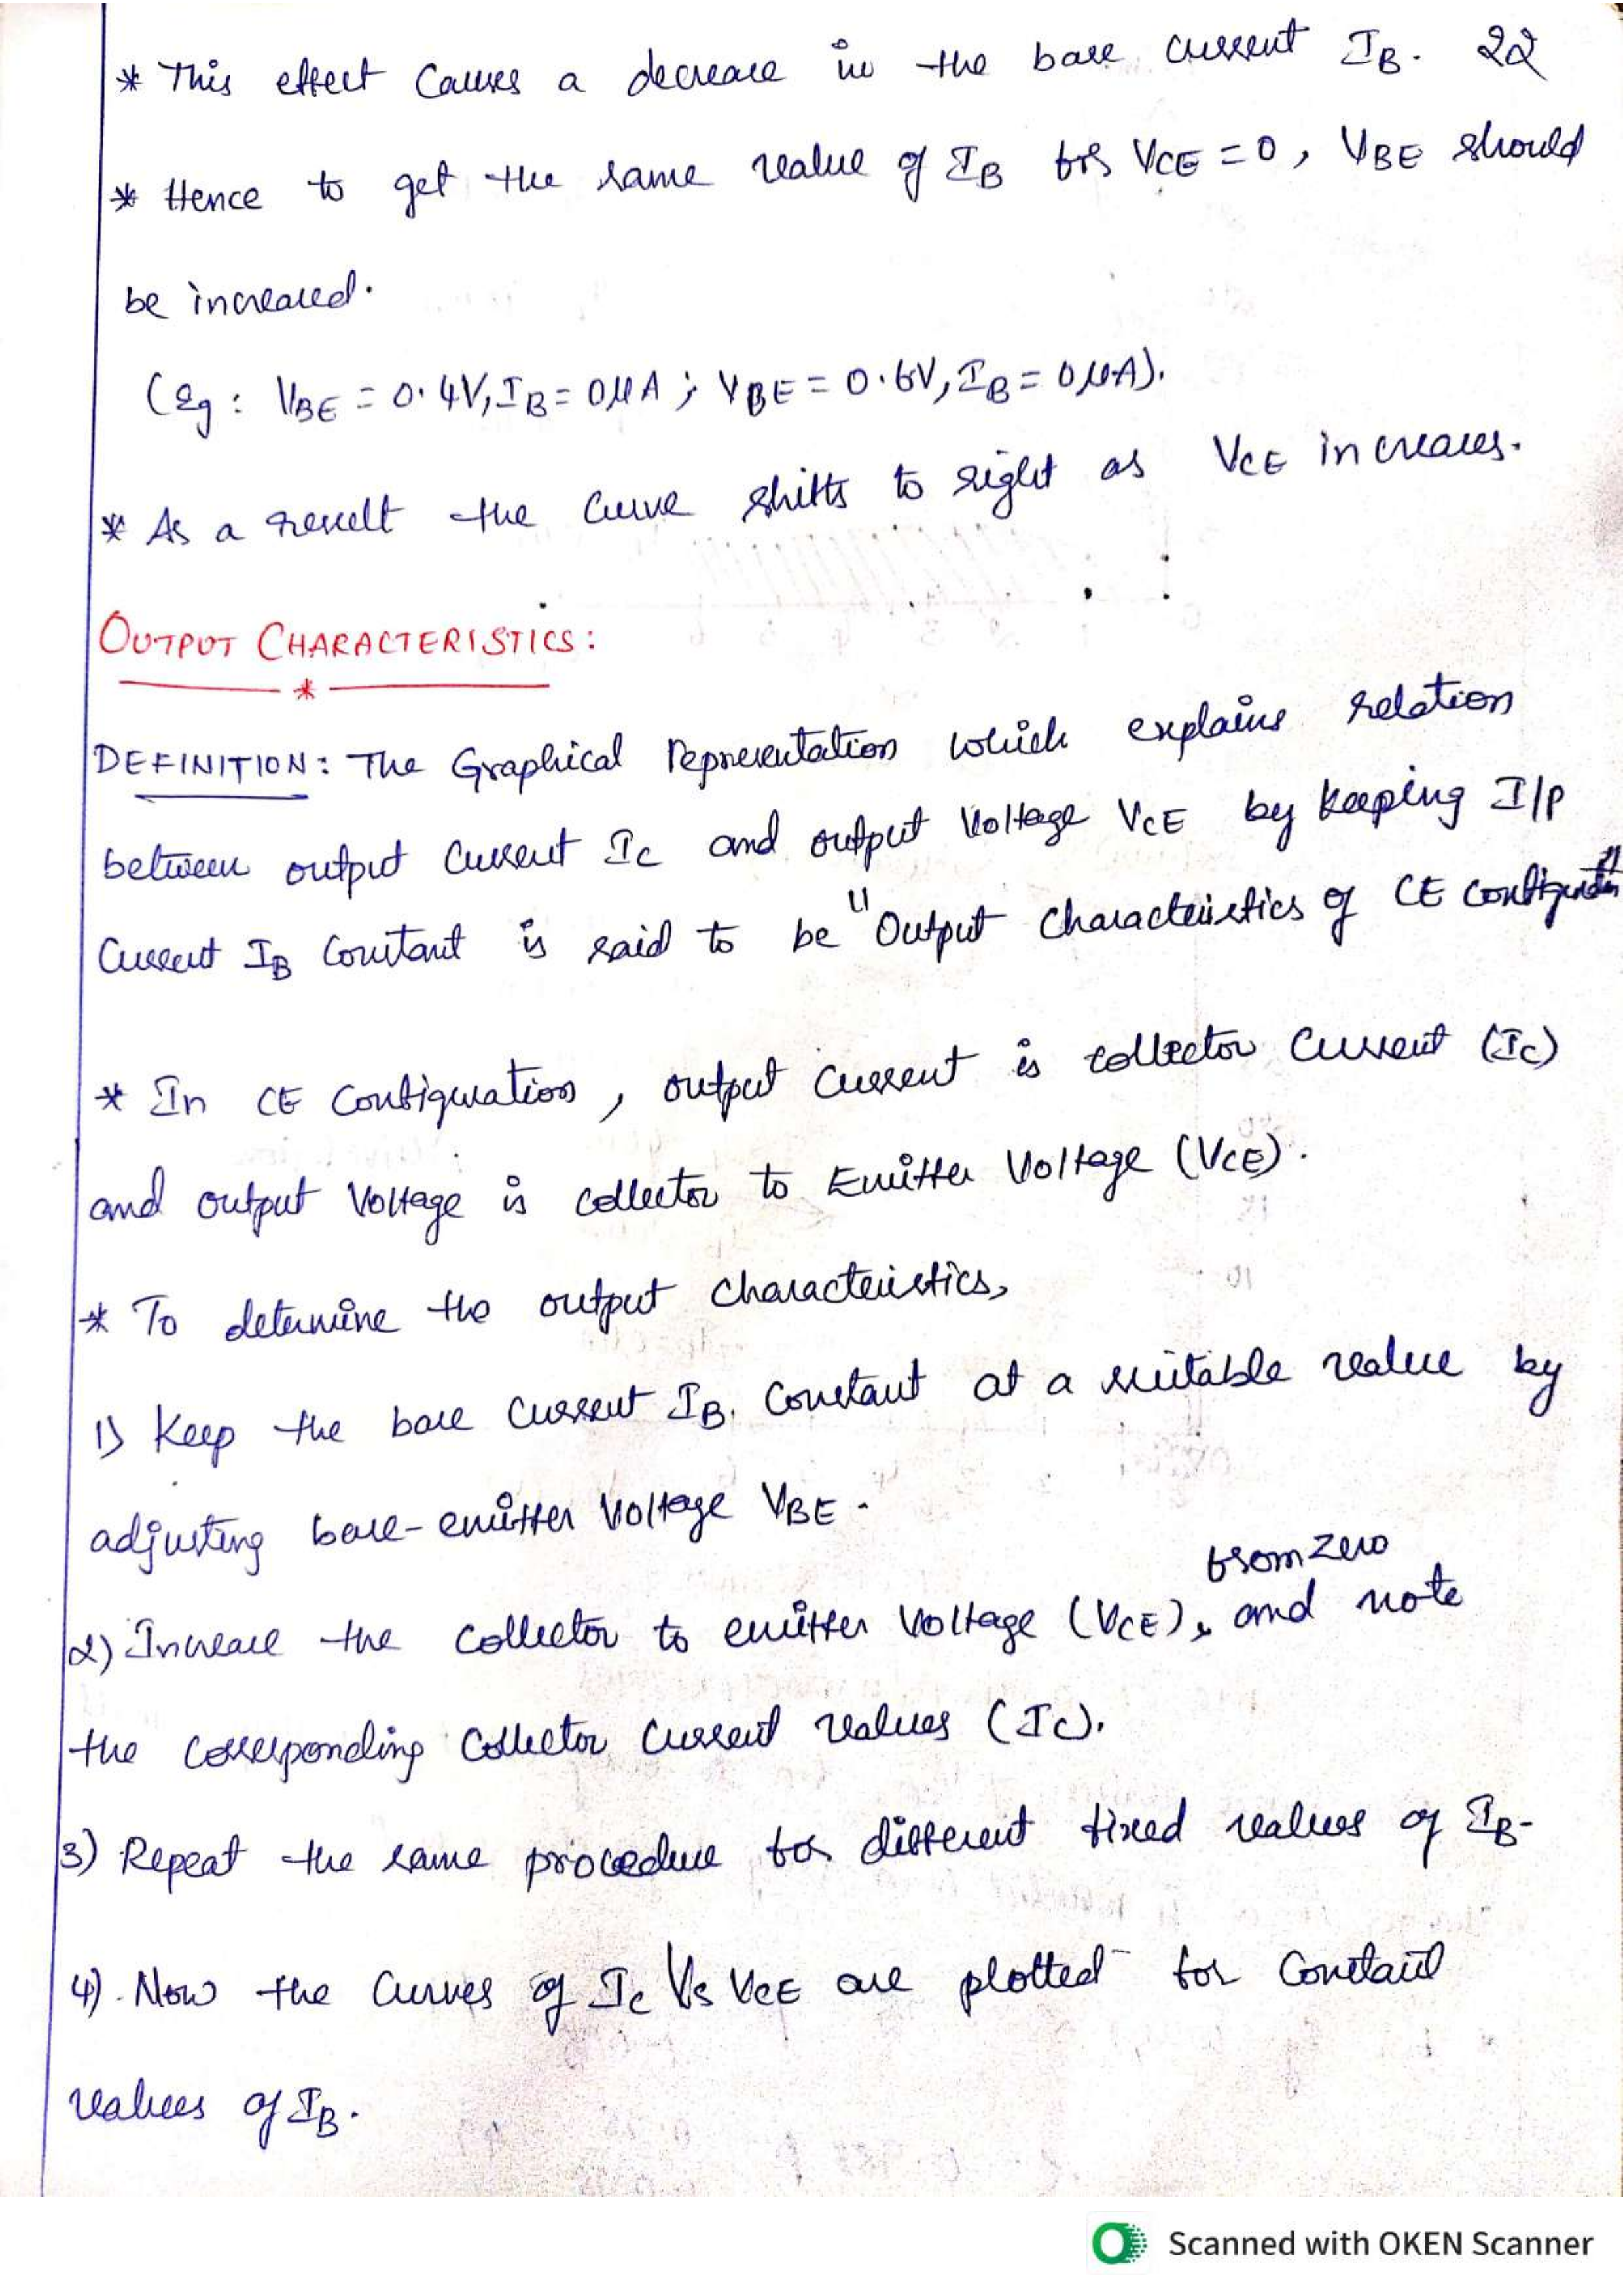 * This effect causes a decrease in the base current IB. 22
* Hence to get the same value of IB for VCE = 0, VBE should
be increased.
(Eg: VBE = 0.4V, IB = 0μA ; VBE = 0.6V, IB = 0μA).
* As a result the curve shifts to right as VCE increases.
OUTPUT CHARACTERISTICS:
*
DEFINITION: The Graphical Representation which explains relation
between output current Ic and output Voltage VCE by keeping I/P
Current IB Constant is said to be "Output Characteristics of CE configuration"
* In CE Configuration, output current is collector current (Ic)
and output Voltage is collector to Emitter Voltage (VCE).
* To determine the output characteristics,
1) Keep the base current IB. Constant at a suitable value by
adjusting base-emitter Voltage VBE.
from zero
2) Increase the collector to emitter Voltage (VCE), and note
the corresponding collector current values (Ic).
3) Repeat the same procedure for different fixed values of IB.
4). Now the curves of Ic Vs VCE are plotted for constant
values of IB.
Scanned with OKEN Scanner